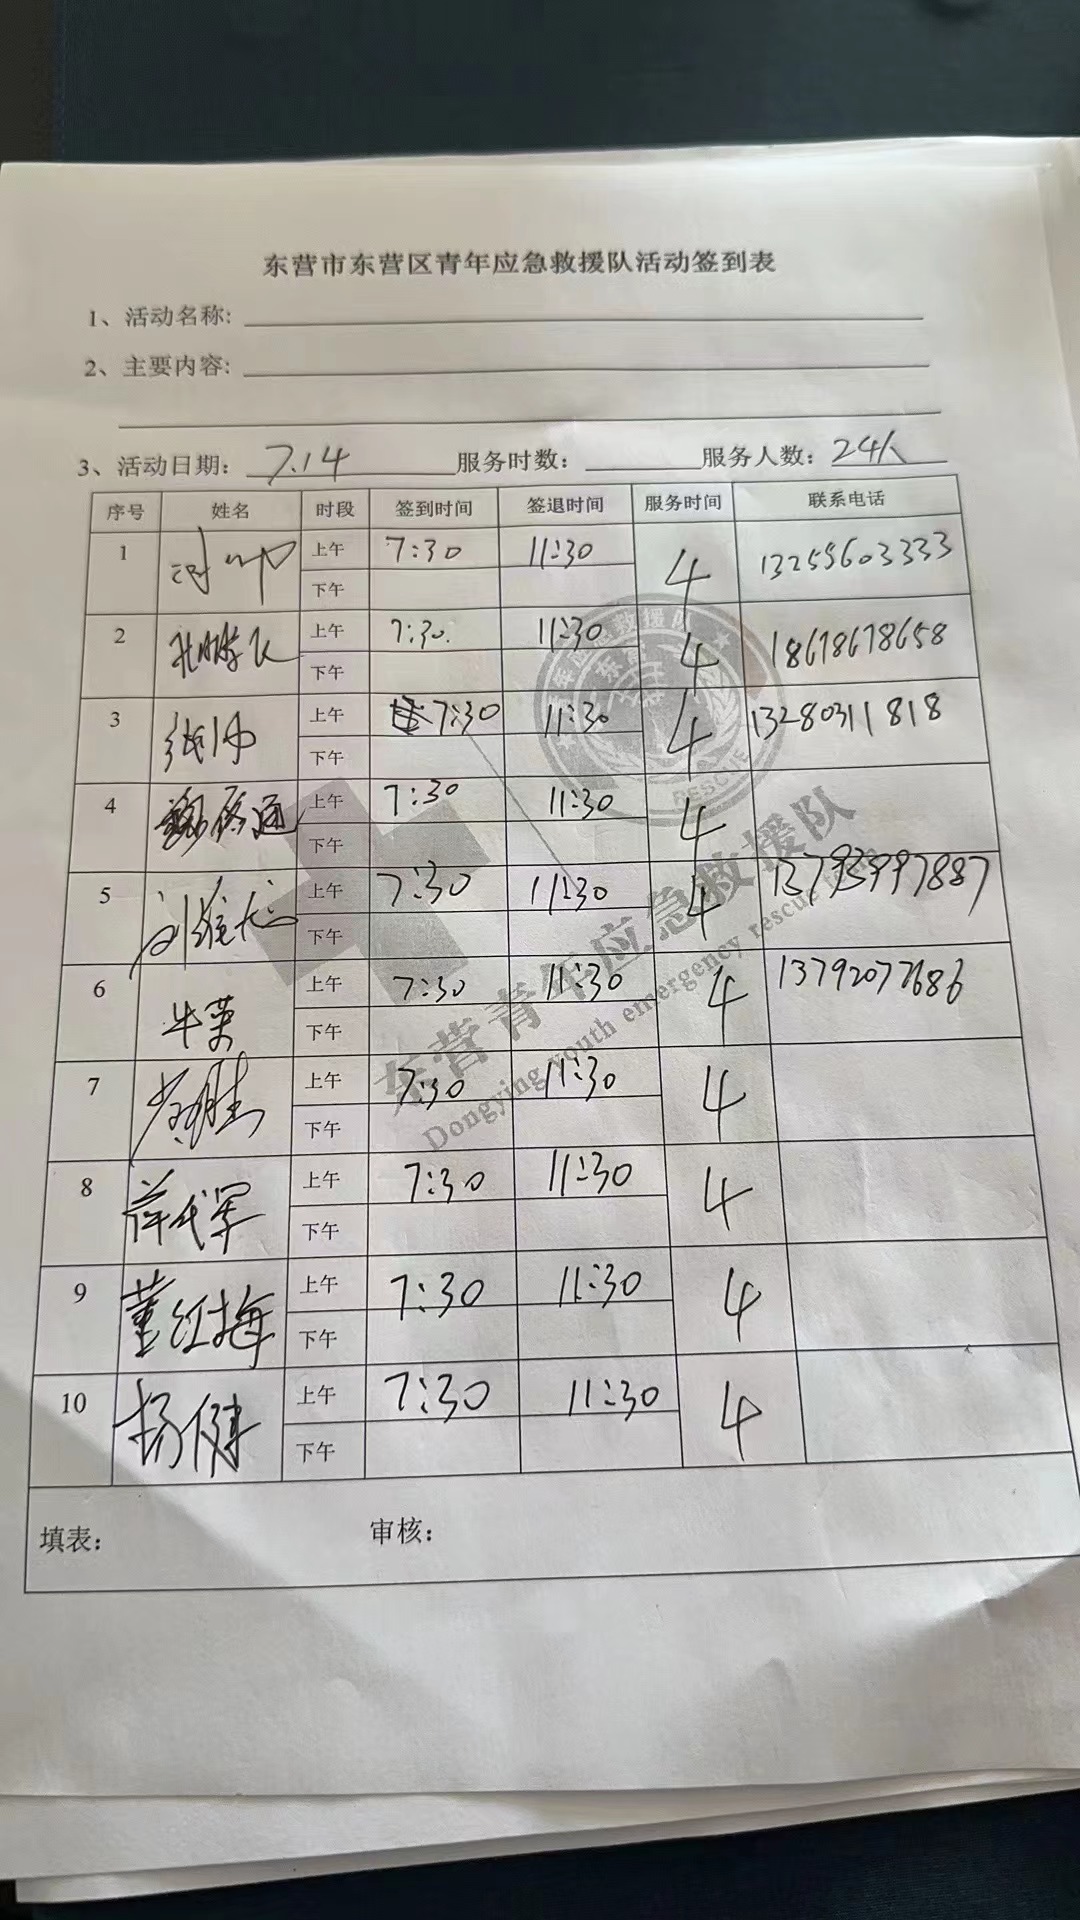 东营市东营区青年应急救援队活动签到表
1、活动名称:
2、主要内容:
3、活动日期: 7.14 服务时数: 服务人数: 24人
序号 姓名 时段 签到时间 签退时间 服务时间 联系电话
1 上午 7:30 11:30 4 13255603333
下午
2 上午 7:30. 11:30 4 18678678658
下午
3 张帅 上午 7:30 11:30 4 13280311818
下午
4 上午 7:30 11:30 4
下午
5 刘维志 上午 7:30 11:30 4 13793997887
下午
6 牛荣 上午 7:30 11:30 4 13792077686
下午
7 上午 7:30 11:30 4
下午
8 薛代军 上午 7:30 11:30 4
下午
9 董红梅 上午 7:30 11:30 4
下午
10 杨健 上午 7:30 11:30 4
下午
填表: 审核:
东营青年应急救援队
Dongying youth emergency rescue
RESCUE